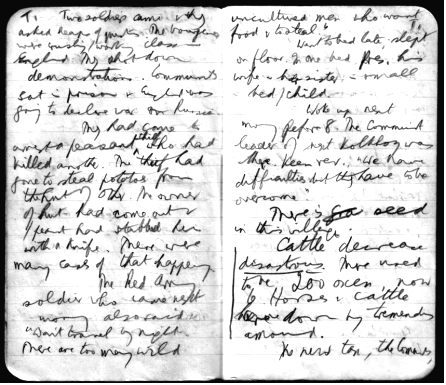 T. Two soldiers came & they
asked heaps of questions. The bourgeois
were crushing working class in
England. They shot down
demonstrations. Communists
sat in prison & England was
going to declare war on Russia.
They had come to
arrest a peasant, who had
killed another. The thief had
gone to steal potatoes from
the hut of other. The owner
of hut had come out &
peasant had stabbed him
with a knife. There were
many cases of that happening.
The Red Army
soldier who came next
morning also said:
"Don't travel by night.
There are too many wild
uncultured men who want
food & to steal."
T.
Went to bed late, slept
on floor. In one bed Pres. his
wife & her sister; in small
bed, child.
Woke up next
morning before 8. The Communist
leader of next Kolkhoz was
there. Keen rev. "We have
difficulties but they have to be
overcome."
There is seed
in this village.
Cattle decrease
disastrous. There used
to be 200 oxen; now
6. Horses & cattle
down by tremendous
amount.
The new tax, the Communist,